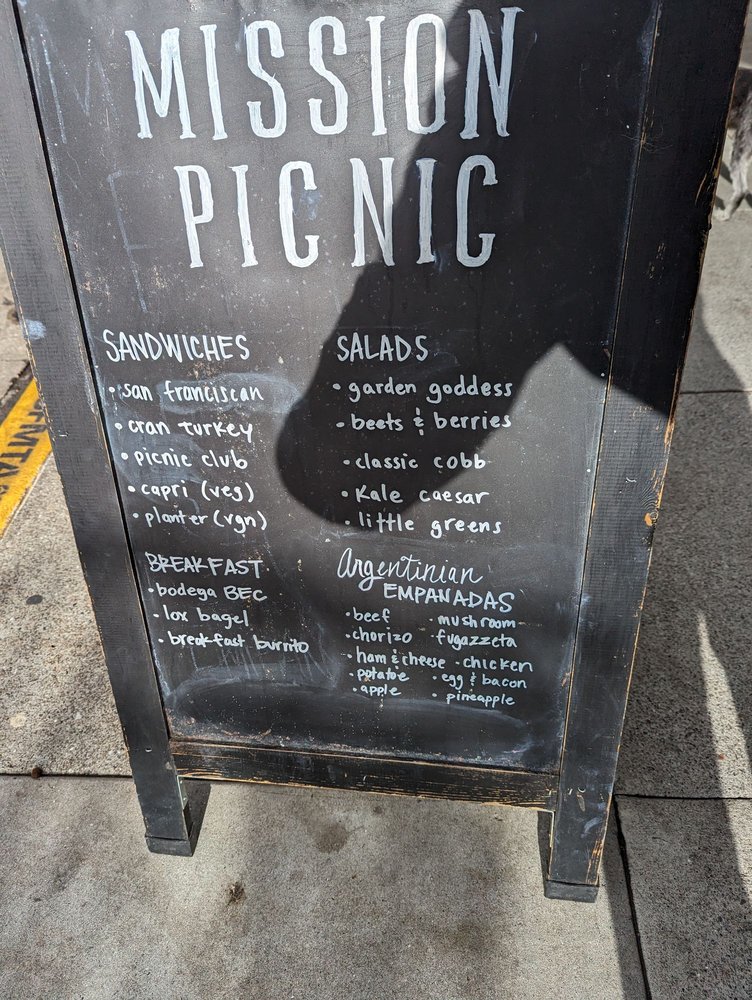 MISSION
PICNIC
SANDWICHES
• san franciscan
• cran turkey
• picnic club
• capri (veg)
• planter (vgn)
BREAKFAST
• bodega BEC
• lox bagel
• breakfast burrito
SALADS
• garden goddess
• beets & berries
• classic cobb
• Kale caesar
• little greens
Argentinian
EMPANADAS
• beef
• chorizo
• ham & cheese
• potatoe
• apple
• mushroom
• fugazzeta
• chicken
• egg & bacon
• pineapple
SFMTA